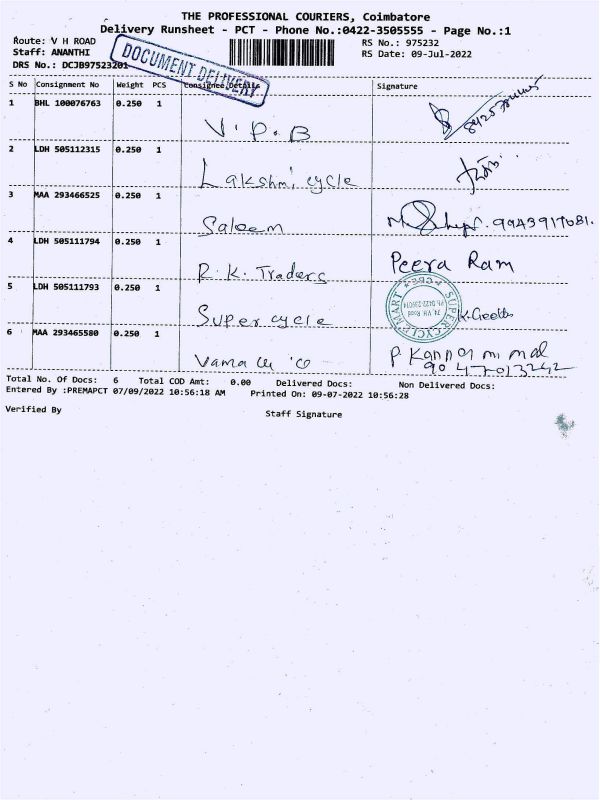 THE PROFESSIONAL COURIERS, Coimbatore
Delivery Runsheet - PCT - Phone No.:0422-3505555 - Page No.:1
Route: V H ROAD
RS No.: 975232
Staff: ANANTHI
RS Date: 09-Jul-2022
DRS No.: DCJB97523201
DOCUMENT DELIVERY
S No Consignment No Weight PCS Consignee Details Signature
1 BHL 100076763 0.250 1
V.P.B
2 LDH 505112315 0.250 1
Lakshmi cycle
3 MAA 293466525 0.250 1
Saleem 9943917081.
4 LDH 505111794 0.250 1
R.K. Traders Peera Ram
5 LDH 505111793 0.250 1
Super cycle K.Geetha
SUPER CYCLE MART
74 VH Road
6 MAA 293465580 0.250 1
P Kannammal
Total No. Of Docs: 6 Total COD Amt: 0.00 Delivered Docs: Non Delivered Docs:
Entered By :PREMAPCT 07/09/2022 10:56:18 AM Printed On: 09-07-2022 10:56:28
Verified By
Staff Signature